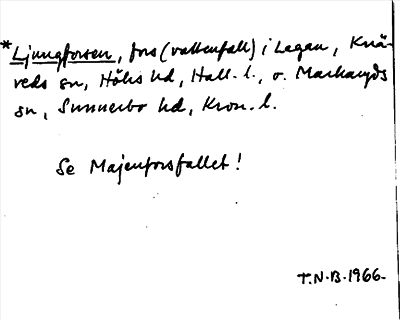 *Ljungforsen, fors (vattenfall) i Lagan, Knä-
reds sn, Höks hd, Hall. l., o. Markaryds
sn, Sunnerbo hd, Kron. l.
Se Majenforsfallet!
T.N.B. 1966.